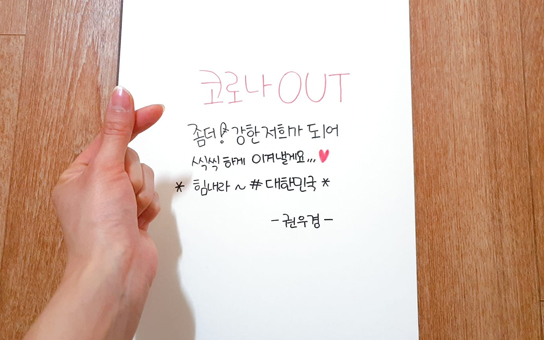 코로나 OUT
좀더! 강한 저희가 되어
씩씩하게 이겨낼게요,,,♥
* 힘내라 ~ # 대한민국 *
- 권우경 -